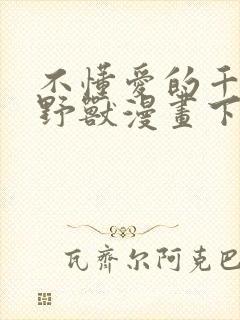 不懂愛的干
野獸漫畫下
瓦齊尔阿克巴